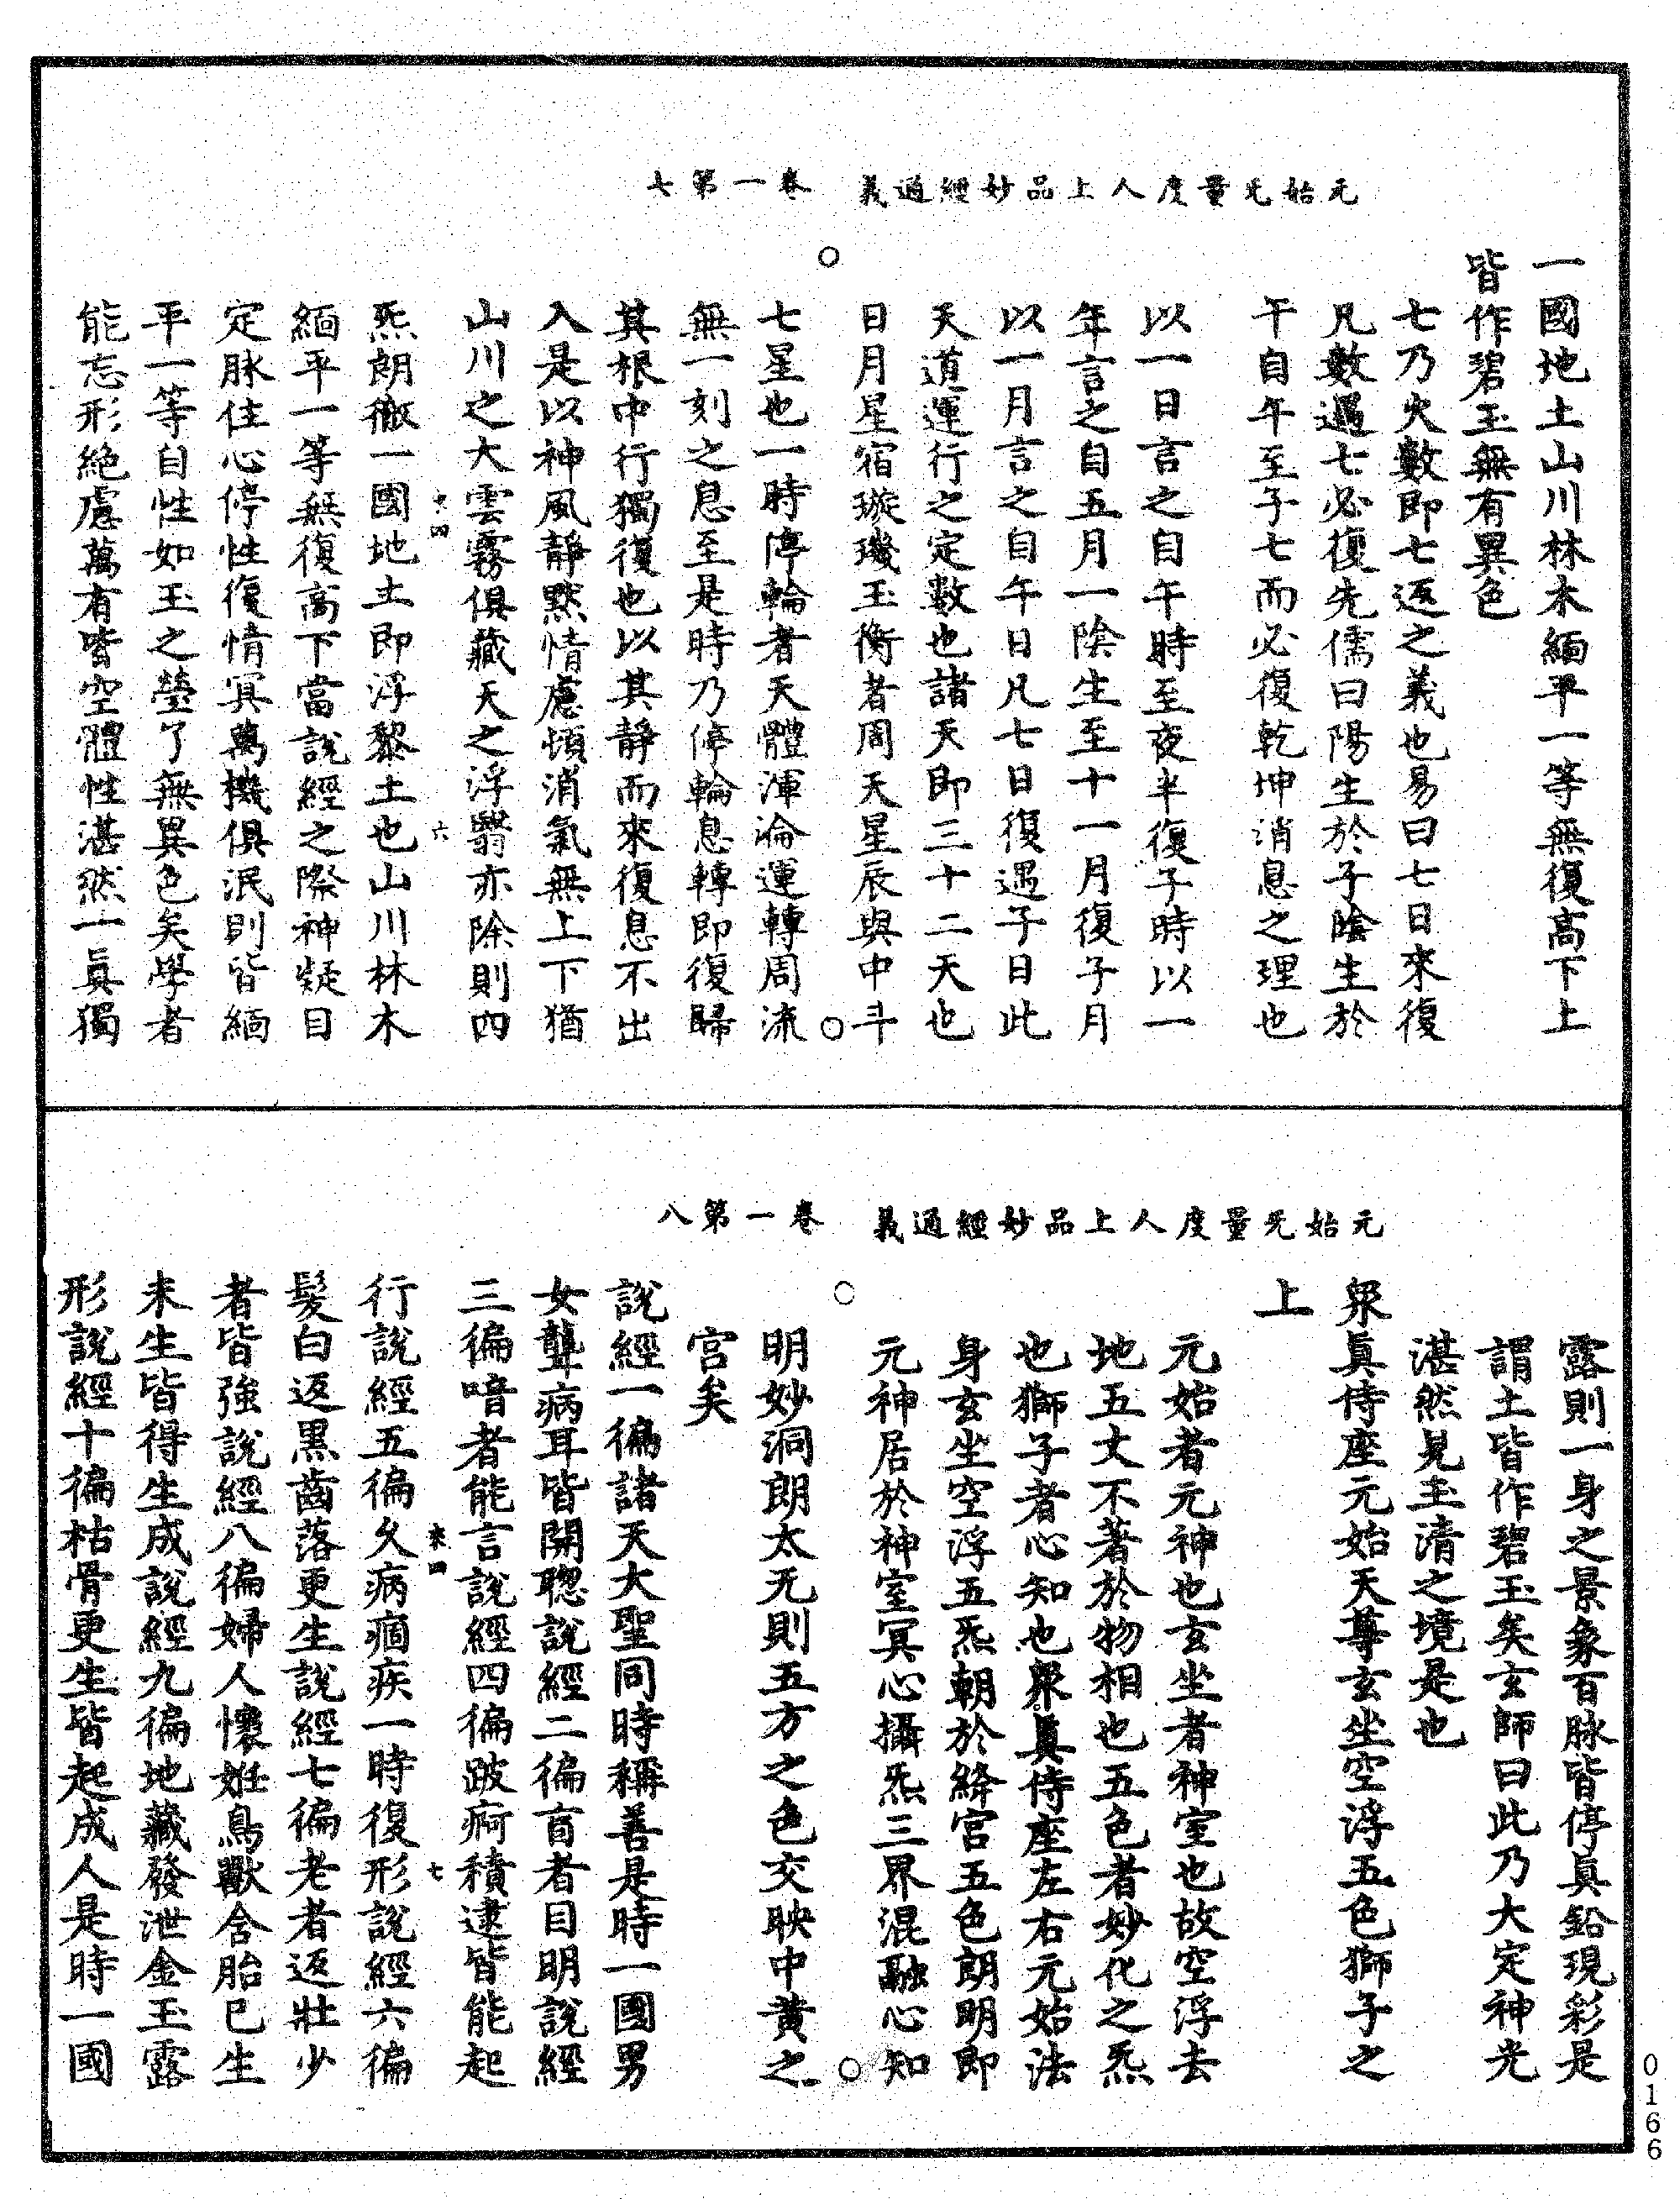 元始无量度人上品妙經通義　卷一第七
一國地土山川林木緬平一等無復高下土
皆作碧玉無有異色
七乃火數即七返之義也易曰七日來復
凡數遇七必復先儒曰陽生於子陰生於
午自午至子七而必復乾坤消息之理也
以一日言之自午時至夜半復子時以一
年言之自五月一陰生至十一月復子月
以一月言之自午日凡七日復遇子日此
天道運行之定數也諸天即三十二天也
日月星宿璇璣玉衡者周天星辰與中斗
七星也一時停輪者天體渾淪運轉周流
無一刻之息至是時乃停輪息轉即復歸
其根中行獨復也以其靜而來復息不出
入是以神風靜默情慮頓消氣無上下猶
山川之大雲霧俱藏天之浮翳亦除則四
炁朗徹一國地土即浮黎土也山川林木
緬平一等無復高下當說經之際神凝目
定脉住心停性復情冥萬機俱泯則皆緬
平一等自性如玉之瑩了無異色矣學者
能忘形絶慮萬有皆空體性湛然一眞獨
元始无量度人上品妙經通義　卷一第八
露則一身之景象百脉皆停眞鉛現彩是
謂土皆作碧玉矣玄師曰此乃大定神光
湛然見玉清之境是也
衆眞侍座元始天尊玄坐空浮五色獅子之
上
元始者元神也玄坐者神室也故空浮去
地五丈不著於物相也五色者妙化之炁
也獅子者心知也衆眞侍座左右元始法
身玄坐空浮五炁朝於絳宮五色朗明即
元神居於神室冥心攝炁三界混融心知
明妙洞朗太无則五方之色交映中黃之
宮矣
說經一徧諸天大聖同時稱善是時一國男
女聾病耳皆開聰說經二徧盲者目明說經
三徧喑者能言說經四徧跛痾積逮皆能起
行說經五徧久病痼疾一時復形說經六徧
髮白返黑齒落更生說經七徧老者返壯少
者皆強說經八徧婦人懷姙鳥獸含胎已生
未生皆得生成說經九徧地藏發泄金玉露
形說經十徧枯骨更生皆起成人是時一國
0166